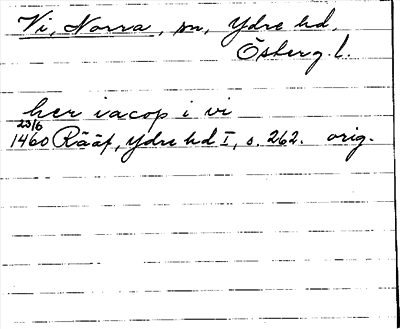 Vi, Norra, sn, Ydre hd,
Österg. l.
her iacop i vi
23/6
1460 Rääf, Ydre hd I, s. 262. orig.